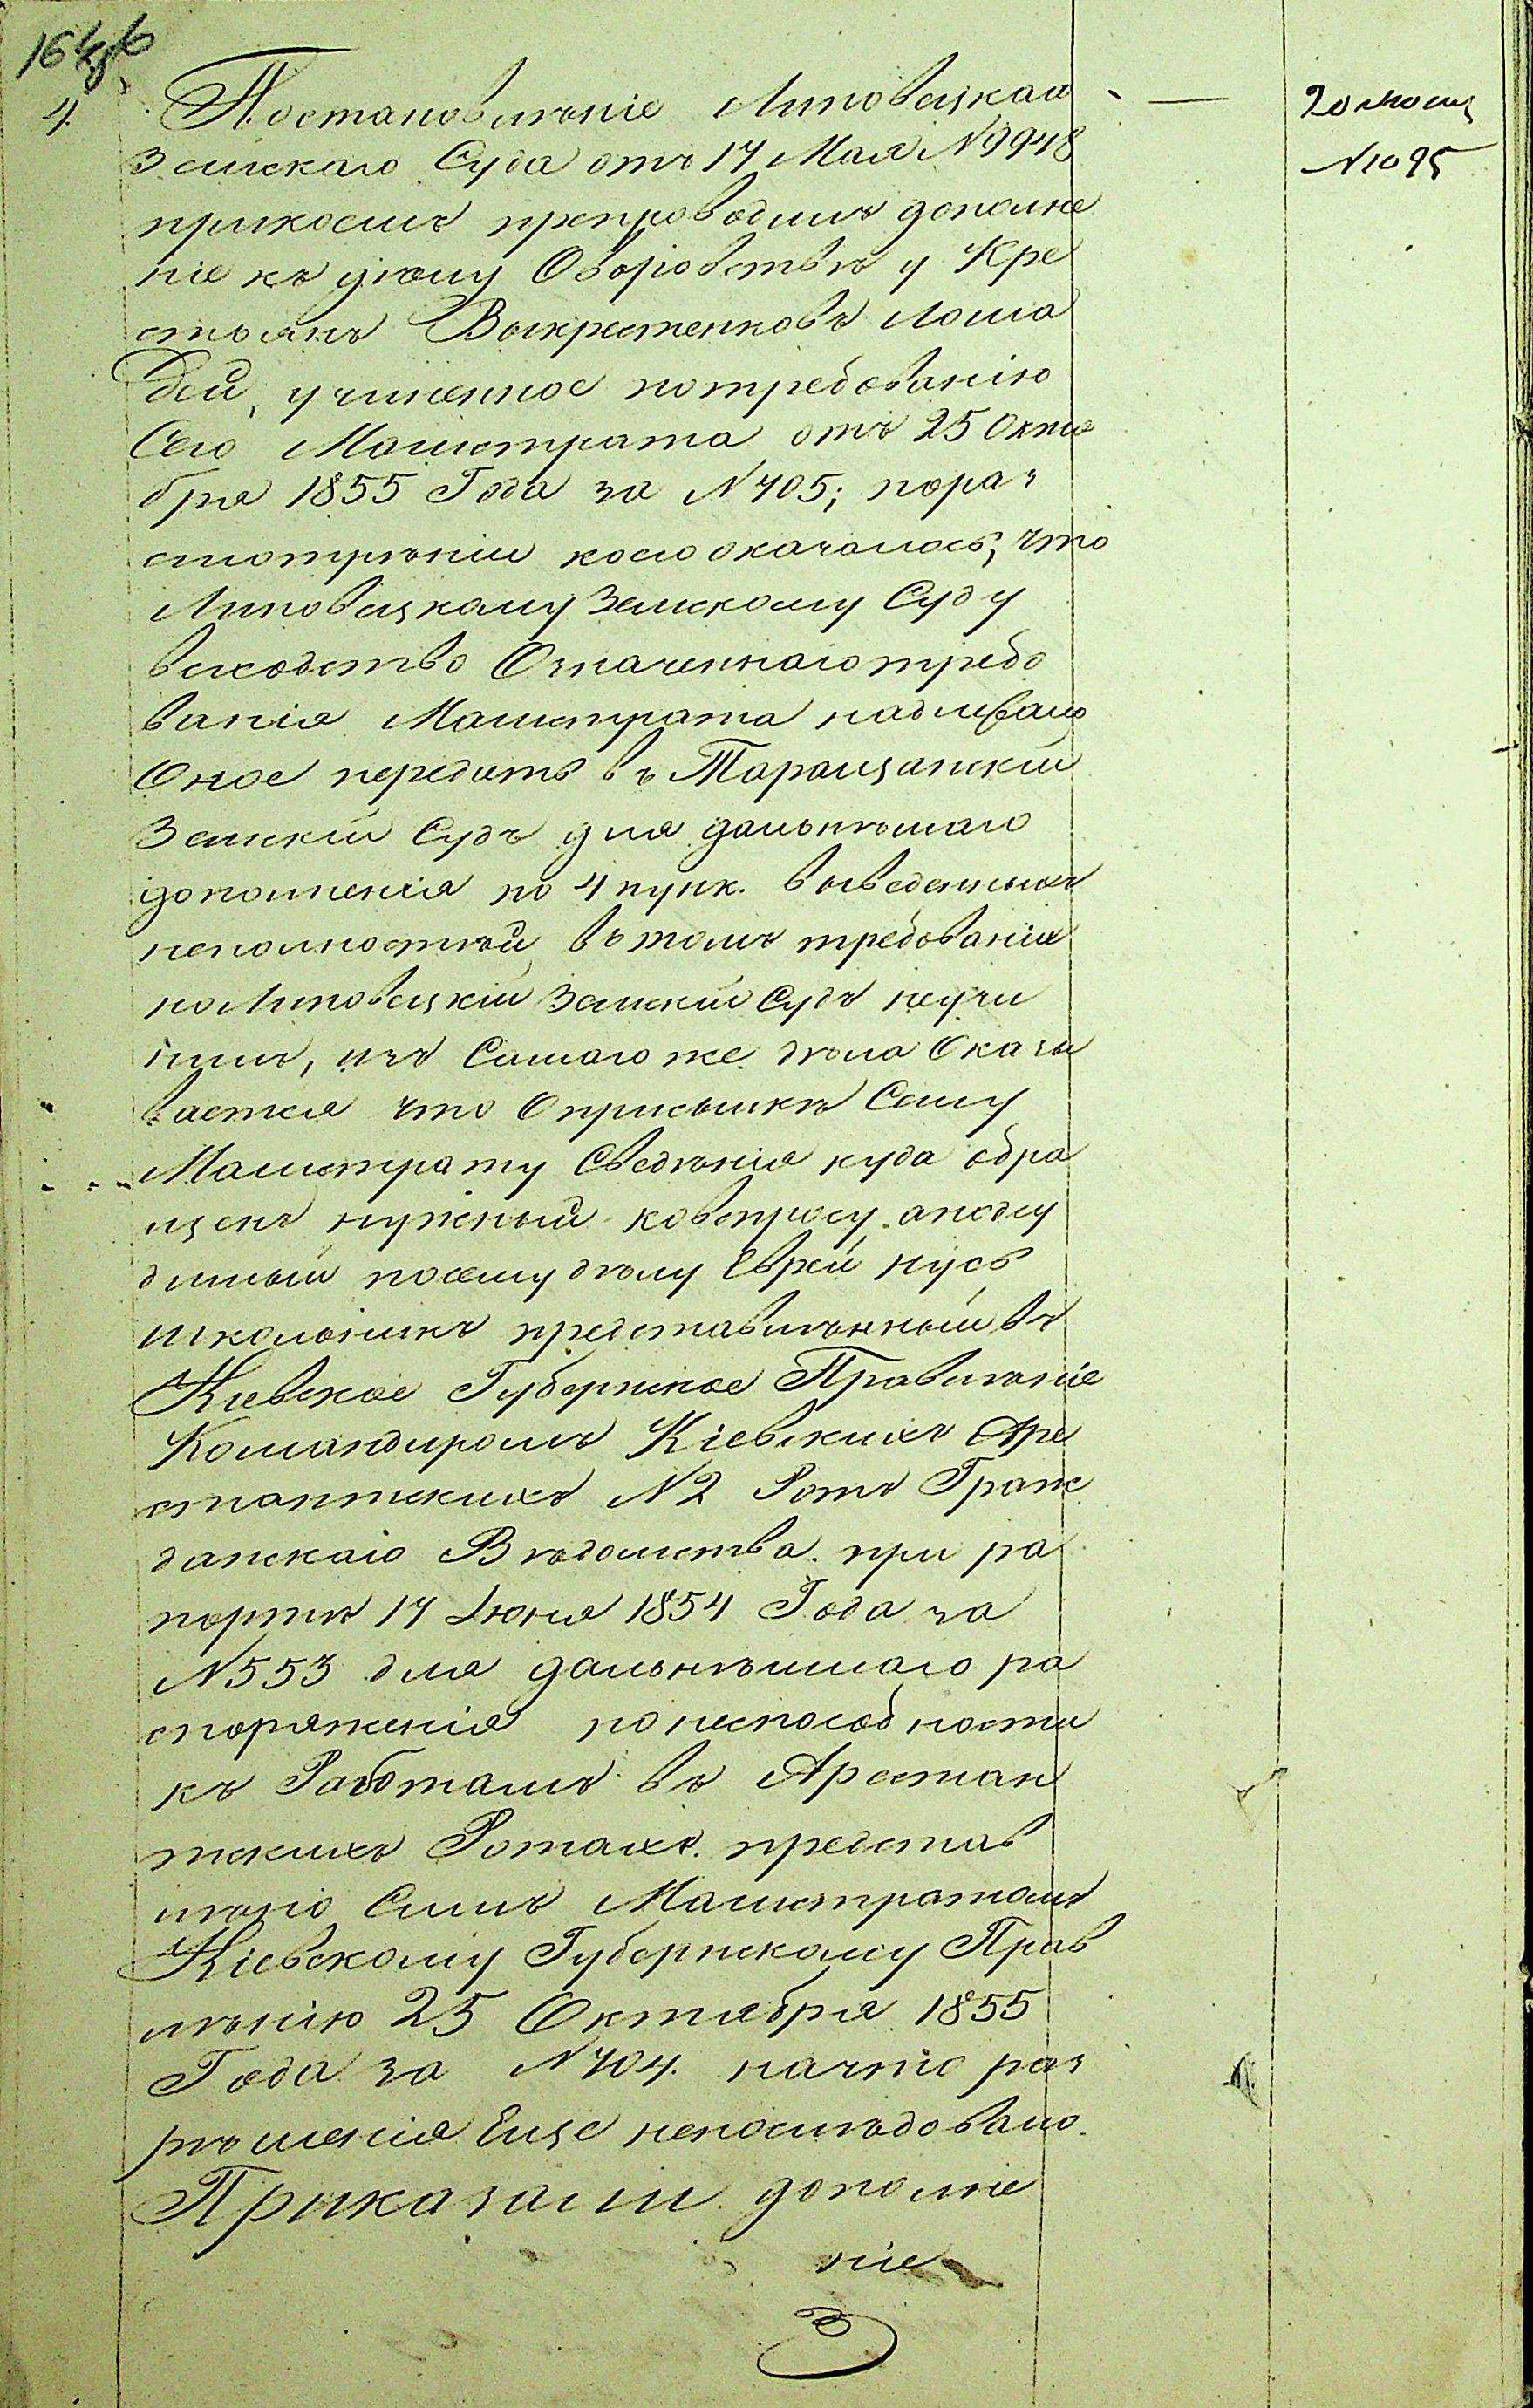 4.
Постановленіе Липовецкаго
Земскаго Суда отъ 17 Мая N9948
прикоемъ препроводилъ дополне
ніе къ дѣлу Оворовствѣ у Кре
стьянъ Воскресенковъ лоша
дей, учиненное потребованію
Сего Магистрата отъ 25 Октя
бря 1855 Года за N705; пораз
смотрѣніи коего оказалось, что
Липовецкому Земскому Суду
вслѣдство Означеннаго требо
ванія Магистрата надлежало
Оное передать въ Таращанскій
Земскій Судъ для дальнѣйшаго
дополненія по 4 пунк. выведенныхъ
неполностей въ томъ требованіи
но Липовецкій Земскій Судъ неучи
нилъ, изъ Самаго же дѣла Оказы
вается что Оприсылкѣ Сему
Магистрату Сведѣнія куда обра
щенъ нужный ковспросу аподсу
димый посему дѣлу Еврей Нусь
школьникъ представленный въ
Кіевское Губернское Правленіе
Командиромъ Кіевскихъ Аре
стантскихъ N2 Ротъ Граж
данскаго Вѣдомства при ра
портѣ 17 Іюня 1854 Года за
N553 для дальнѣйшаго ра
споряженія понеспособности
къ Работамъ въ Арестан
тскихъ Ротахъ представ
лѣно Симъ Магистратомъ
Кіевскому Губернскому Прав
лѣнію 25 Октября 1855
Года за N704. начто раз
рѣшенія Еще непослѣдовало.
Приказали дополне
ніе
N1095